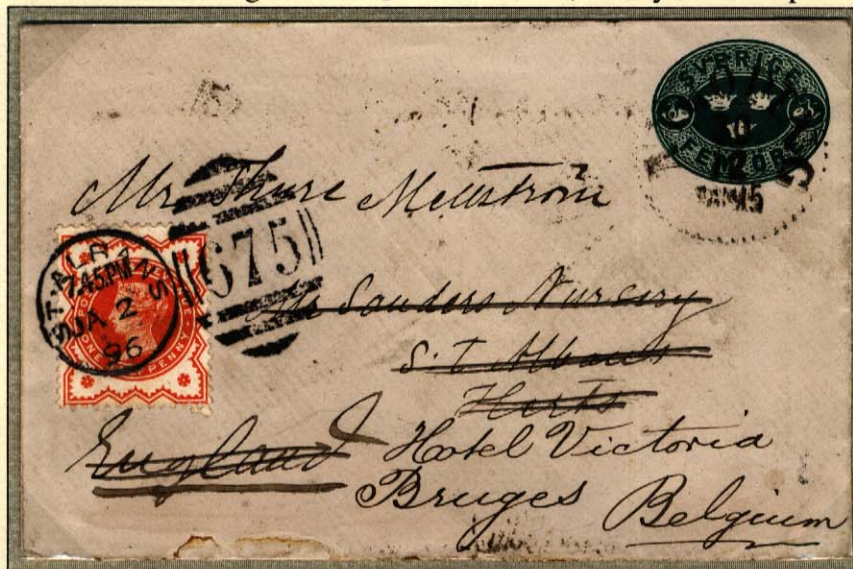 SVERIGE
FEM ÖRE
Mr. Thure Mellström
ST ALBANS
7.45PM
JA 2
96
675
Mr Sanders Nursery
S.T Albans
Herts
England
Hotel Victoria
Bruges
Belgium